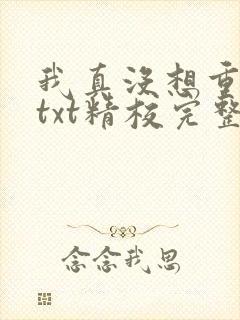 我真没想重
txt精校完整
念念我思